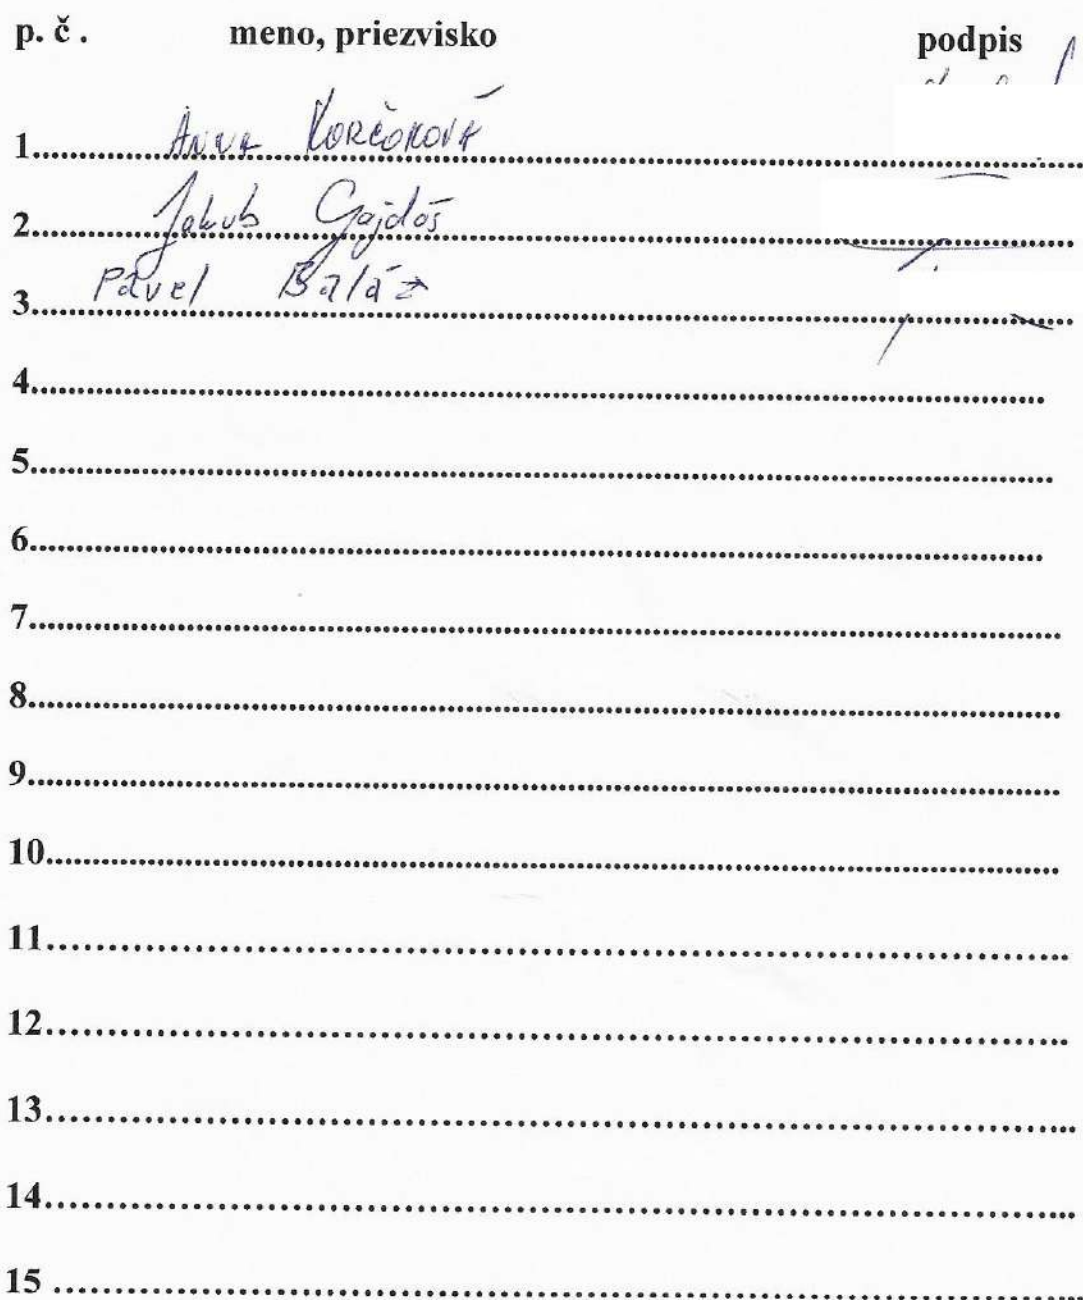 p. č. meno, priezvisko podpis
1. ANNA KORČOKOVÁ
2. Jakub Gajdoš
3. Pavel Baláž
4.
5.
6.
7.
8.
9.
10.
11.
12.
13.
14.
15